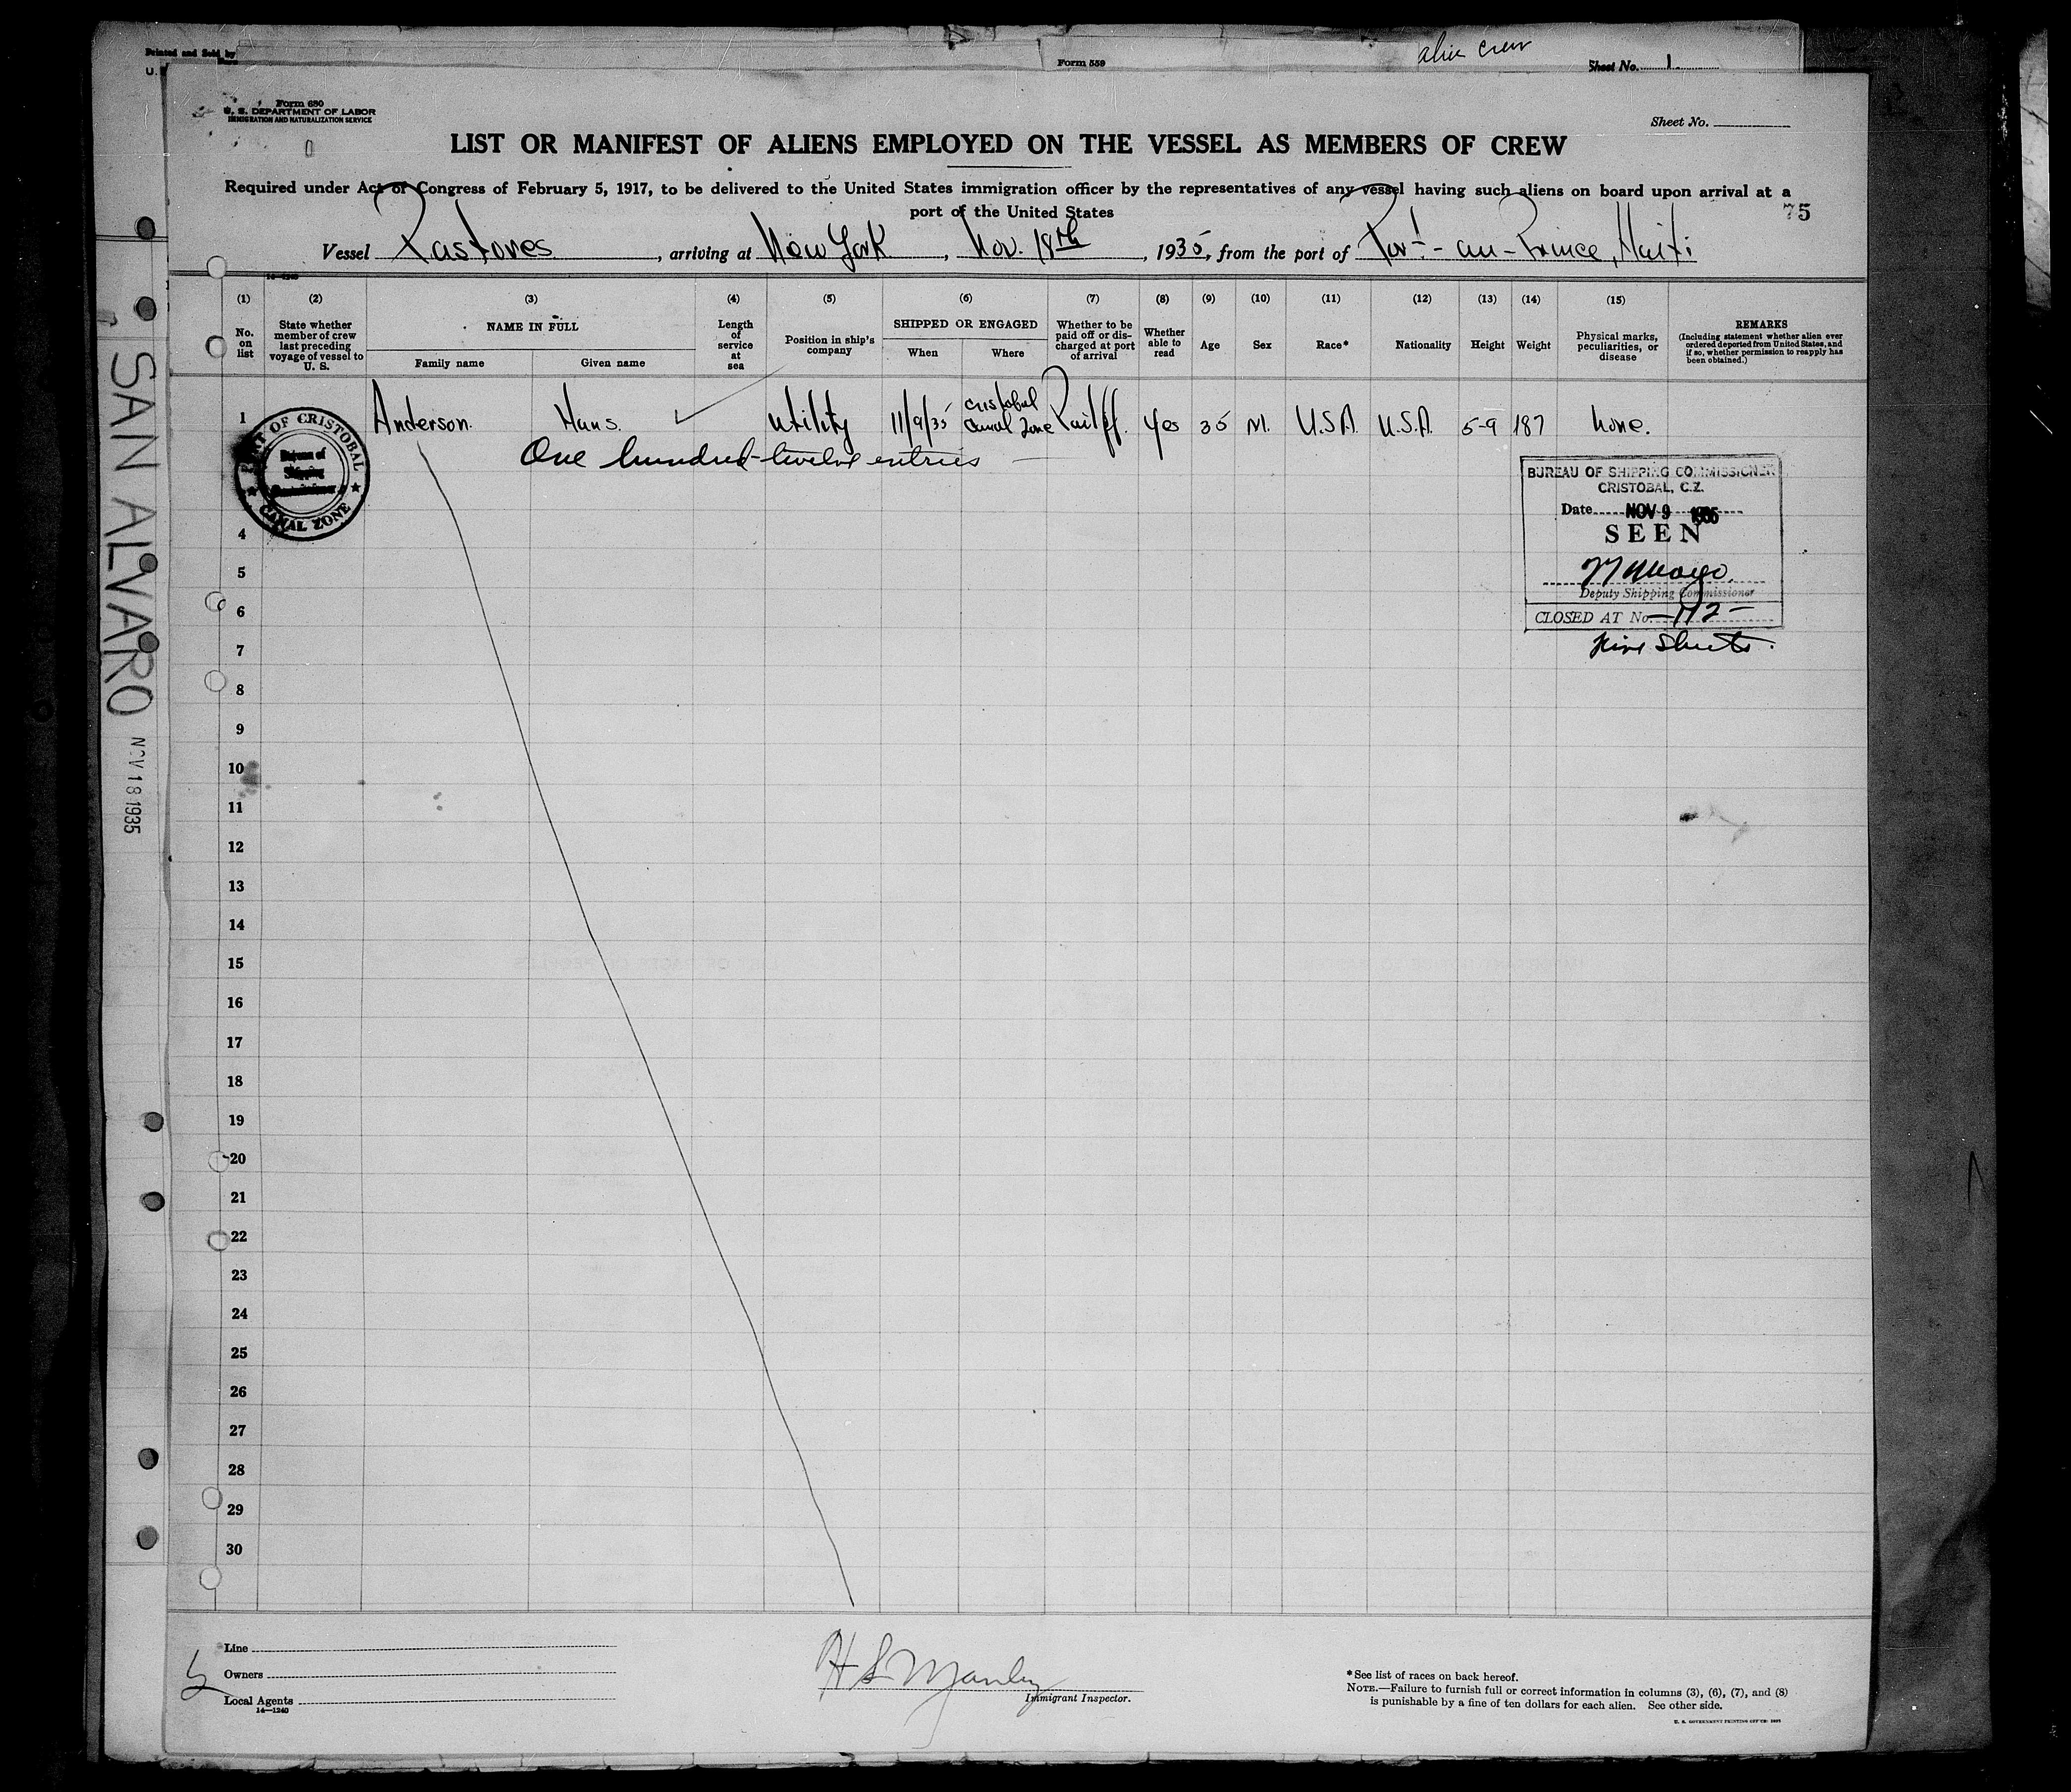 Printed and Sold by
U.
Form 559
alien crew
Sheet No. 1
Form 680
U. S. DEPARTMENT OF LABOR
IMMIGRATION AND NATURALIZATION SERVICE
Sheet No.
LIST OR MANIFEST OF ALIENS EMPLOYED ON THE VESSEL AS MEMBERS OF CREW
Required under Act of Congress of February 5, 1917, to be delivered to the United States immigration officer by the representatives of any vessel having such aliens on board upon arrival at a
port of the United States
75
Vessel Pastores, arriving at New York, Nov. 18th, 1935, from the port of Port-au-Prince, Haiti
14-1240
(1) (2) (3) (4) (5) (6) (7) (8) (9) (10) (11) (12) (13) (14) (15)
No. on list
State whether member of crew last preceding voyage of vessel to U. S.
NAME IN FULL
Family name
Given name
Length of service at sea
Position in ship's company
SHIPPED OR ENGAGED
When
Where
Whether to be paid off or discharged at port of arrival
Whether able to read
Age
Sex
Race*
Nationality
Height
Weight
Physical marks, peculiarities, or disease
REMARKS
(Including statement whether alien ever ordered deported from United States, and if so, whether permission to reapply has been obtained.)
1 Anderson. Hans. Utility 11/9/35 Cristobal Canal Zone Yes 35 M. U.S.A. U.S.A. 5-9 187 None.
One hundred-twelve entries
PORT OF CRISTOBAL
Bureau of
Shipping
Commissioner
CANAL ZONE
BUREAU OF SHIPPING COMMISSIONER
CRISTOBAL, C.Z.
Date NOV 9 1935
SEEN
Deputy Shipping Commissioner
CLOSED AT No. -112-
Sheets.
4
5
6
7
8
9
10
11
12
13
14
15
16
17
18
19
20
21
22
23
24
25
26
27
28
29
30
SAN ALVARO
NOV 18 1935
Line
Owners
Local Agents
14-1240
5
H S Manley
Immigrant Inspector.
*See list of races on back hereof.
NOTE.—Failure to furnish full or correct information in columns (3), (6), (7), and (8)
is punishable by a fine of ten dollars for each alien. See other side.